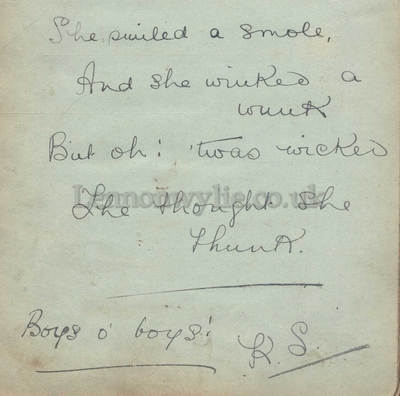 She smiled a smole,
And she winked a
wunk
But oh! 'twas wicked
Lennonwylie.co.uk
The thought she
thunk.
Boys o' boys!
K. S.